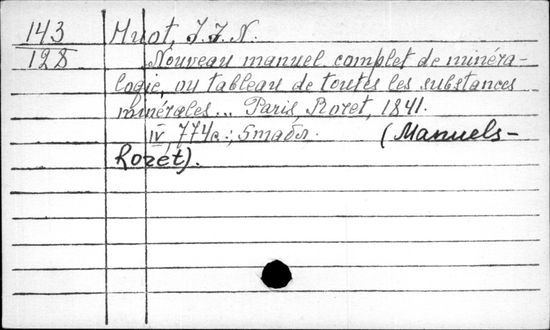 143 Huot, J.J.N.
128 Nouveau manuel complet de minéra-
logie, ou tableau de toutes les substances
minérales... Paris, Roret, 1841.
IV, 774c.; 5табл. (Manuels-
Roret).